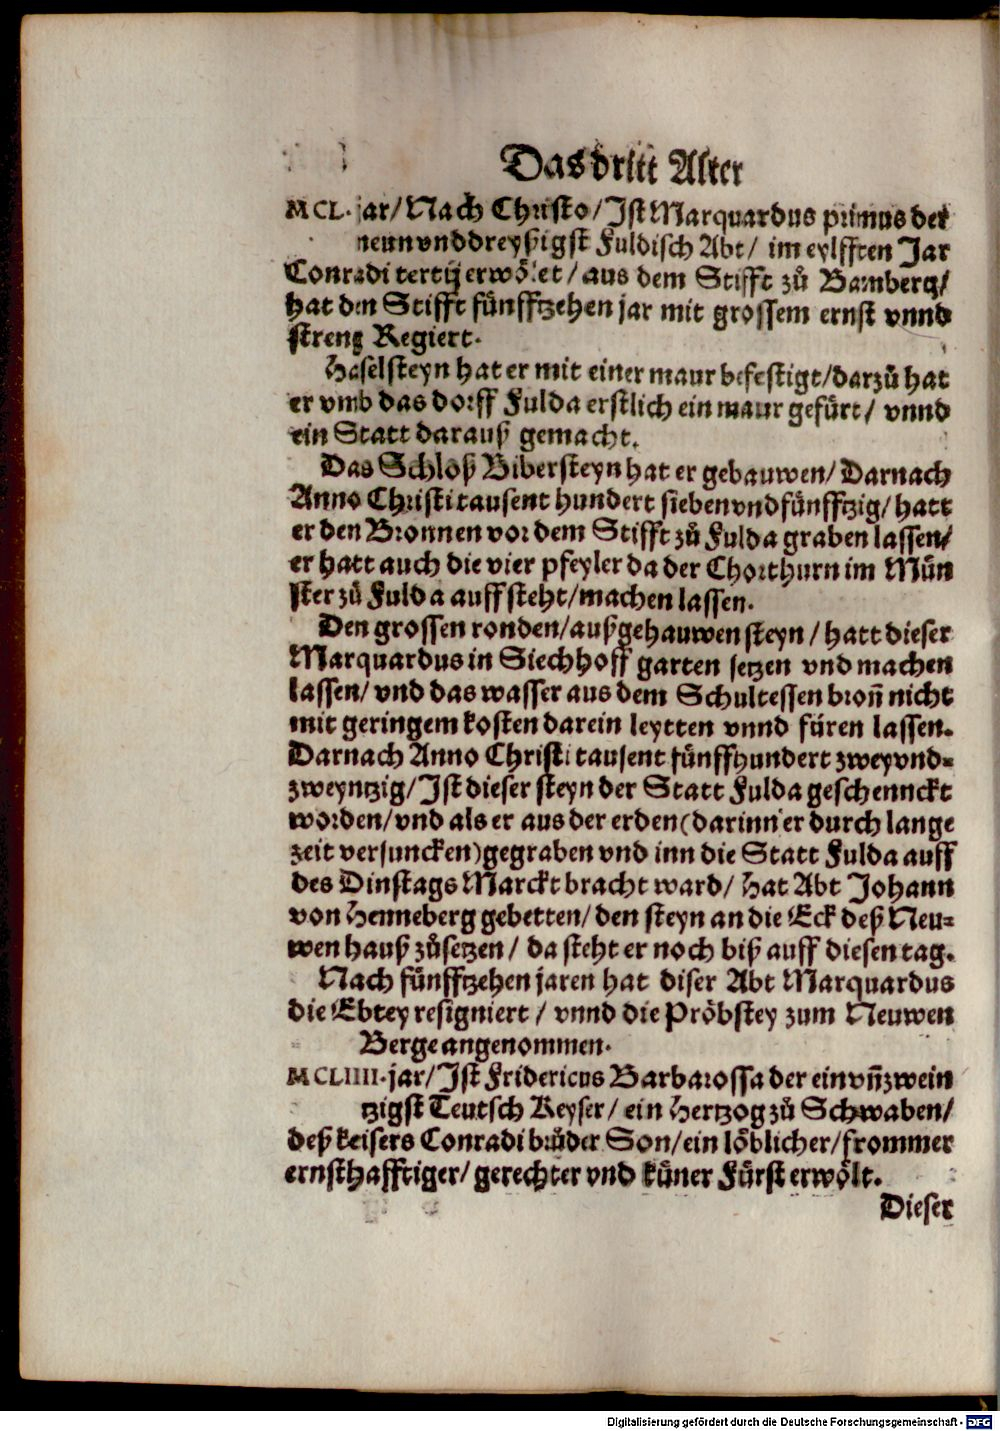 Das dritt Alter
MCL. jar/ Nach Christo/ Ist Marquardus primus der
neun vnd dreyßigst Fuldisch Abt/ im eylfften Jar
Conradi tertij erwölet/ aus dem Stifft zů Bamberg/
hat den Stifft fünfftzehen jar mit grossem ernst vnnd
streng Regiert.
Haselsteyn hat er mit einer maur befestigt/ darzů hat
er vmb das dorff Fulda erstlich ein maur gefürt/ vnnd
ein Statt darauß gemacht.
Das Schloß Bibersteyn hat er gebauwen/ Darnach
Anno Christi tausent hundert sieben vnd fünfftzig/ hatt
er den Bronnen vor dem Stifft zů Fulda graben lassen/
er hatt auch die vier pfeyler da der Chorthurn im Mün
ster zů Fulda auff steht/ machen lassen.
Den grossen ronden/ außgehauwen steyn/ hatt dieser
Marquardus in Siechhoff garten setzen vnd machen
lassen/ vnd das wasser aus dem Schultessen bron̄ nicht
mit geringem kosten darein leytten vnnd füren lassen.
Darnach Anno Christi tausent fünffhundert zweyvnd=
zweyntzig/ Ist dieser steyn der Statt Fulda geschennckt
worden/ vnd als er aus der erden (darinn er durch lange
zeit versuncken) gegraben vnd inn die Statt Fulda auff
des Dinstags Marckt bracht ward/ hat Abt Johann
von Henneberg gebetten/ den steyn an die Eck deß Neu=
wen hauß zůsetzen/ da steht er noch biß auff diesen tag.
Nach fünfftzehen jaren hat diser Abt Marquardus
die Ebtey resigniert/ vnnd die Pröbstey zum Neuwen
Berge angenommen.
MCLIIII. jar/ Ist Fridericus Barbarossa der ein vn̄ zwein
tzigst Teutsch Keyser/ ein Hertzog zů Schwaben/
deß keisers Conradi brůder Son/ ein löblicher/ frommer
ernsthafftiger/ gerechter vnd küner Fürst erwölt.
Dieser
Digitalisierung gefördert durch die Deutsche Forschungsgemeinschaft - DFG